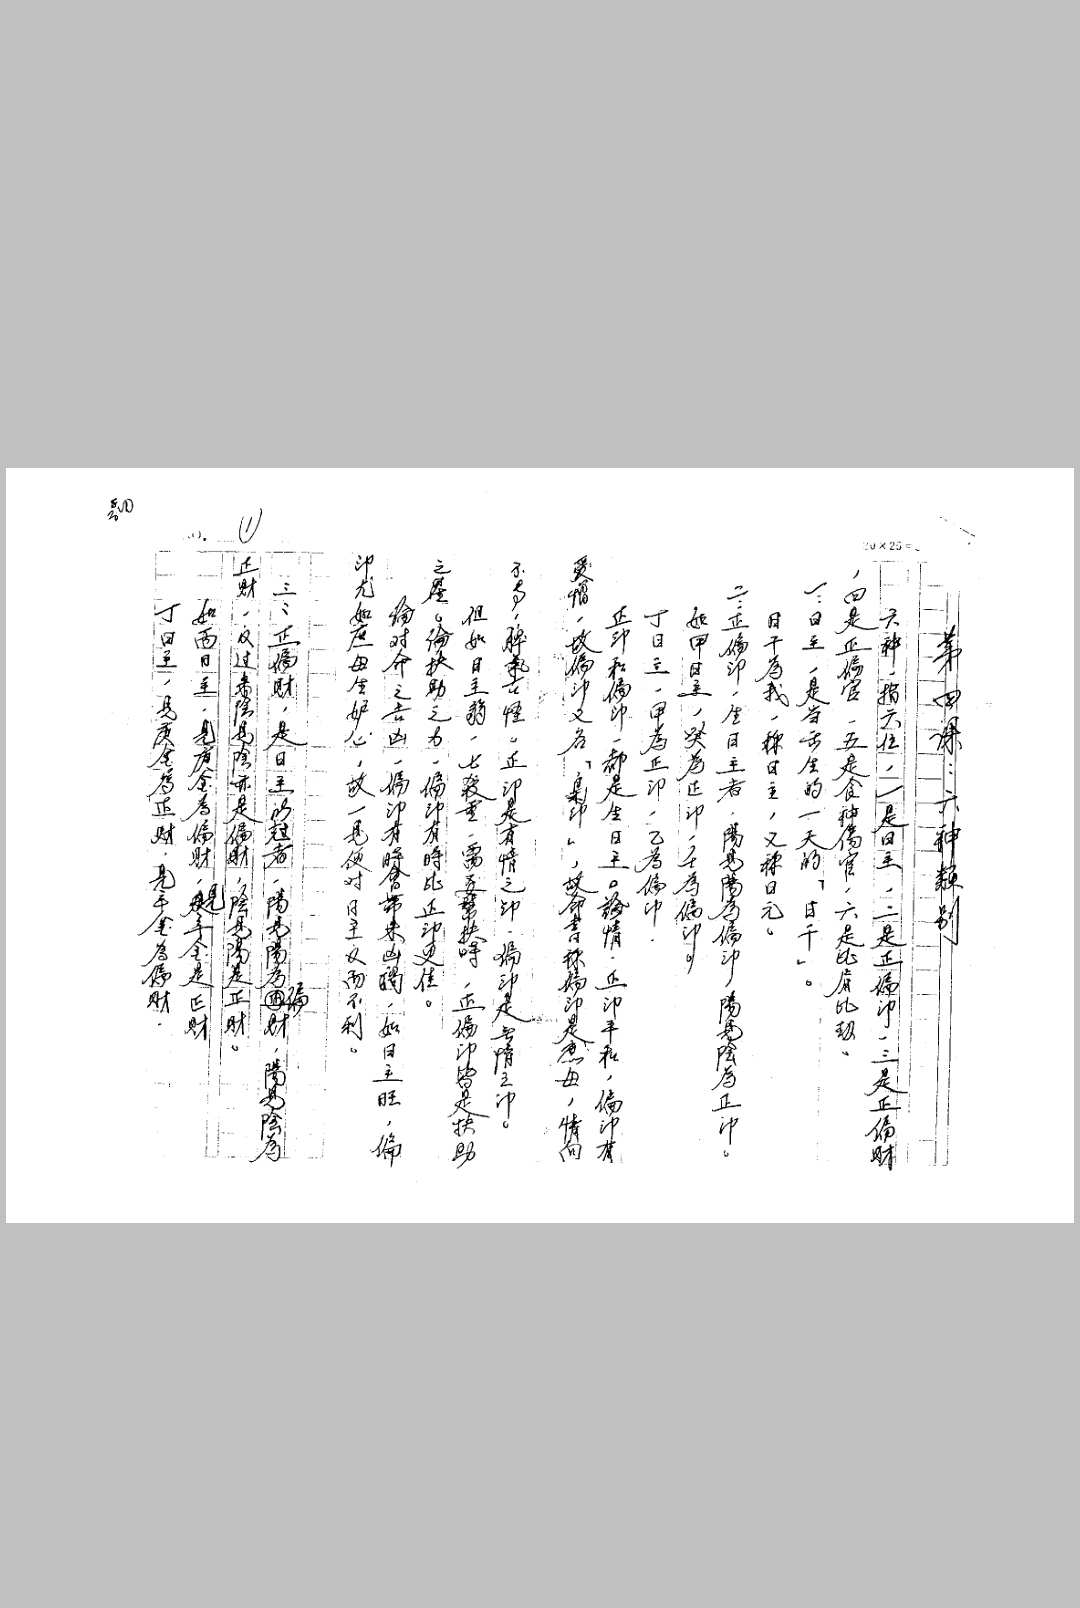 20×25=
第四課：六神類別
六神，指六位，一是日主，二是正偏印，三是正偏財
，四是正偏官，五是食神傷官，六是比肩比劫。
一：日主，是当事生的一天的「日干」。
日干為我，稱日主，又稱日元。
二：正偏印，生日主者，陽見陽為偏印，陽見陰為正印。
如甲日主，癸為正印，壬為偏印。
丁日主，甲為正印，乙為偏印。
正印和偏印，都是生日主。論情，正印平和，偏印有
愛憎，故偏印又名「梟印」，故命書稱偏印是庶母，情向
不专，脾氣古怪。正印是有情之印，偏印是無情之印。
但如日主弱，七殺重，需要幫扶時，正偏印皆是扶助
之星。論扶助之力，偏印有時比正印更佳。
論对命之吉凶，偏印有時會帶來凶禍，如日主旺，偏
印尤如庶母生妒心，故一見便对日主反而不利。
三：正偏財，是日主所尅者，陽見陽為偏財，陽見陰為
正財，反过來陰見陰亦是偏財，陰見陽是正財。
如丙日主，見庚金為偏財，見辛金是正財
丁日主，見庚金為正財，見辛金為偏財．
(1)